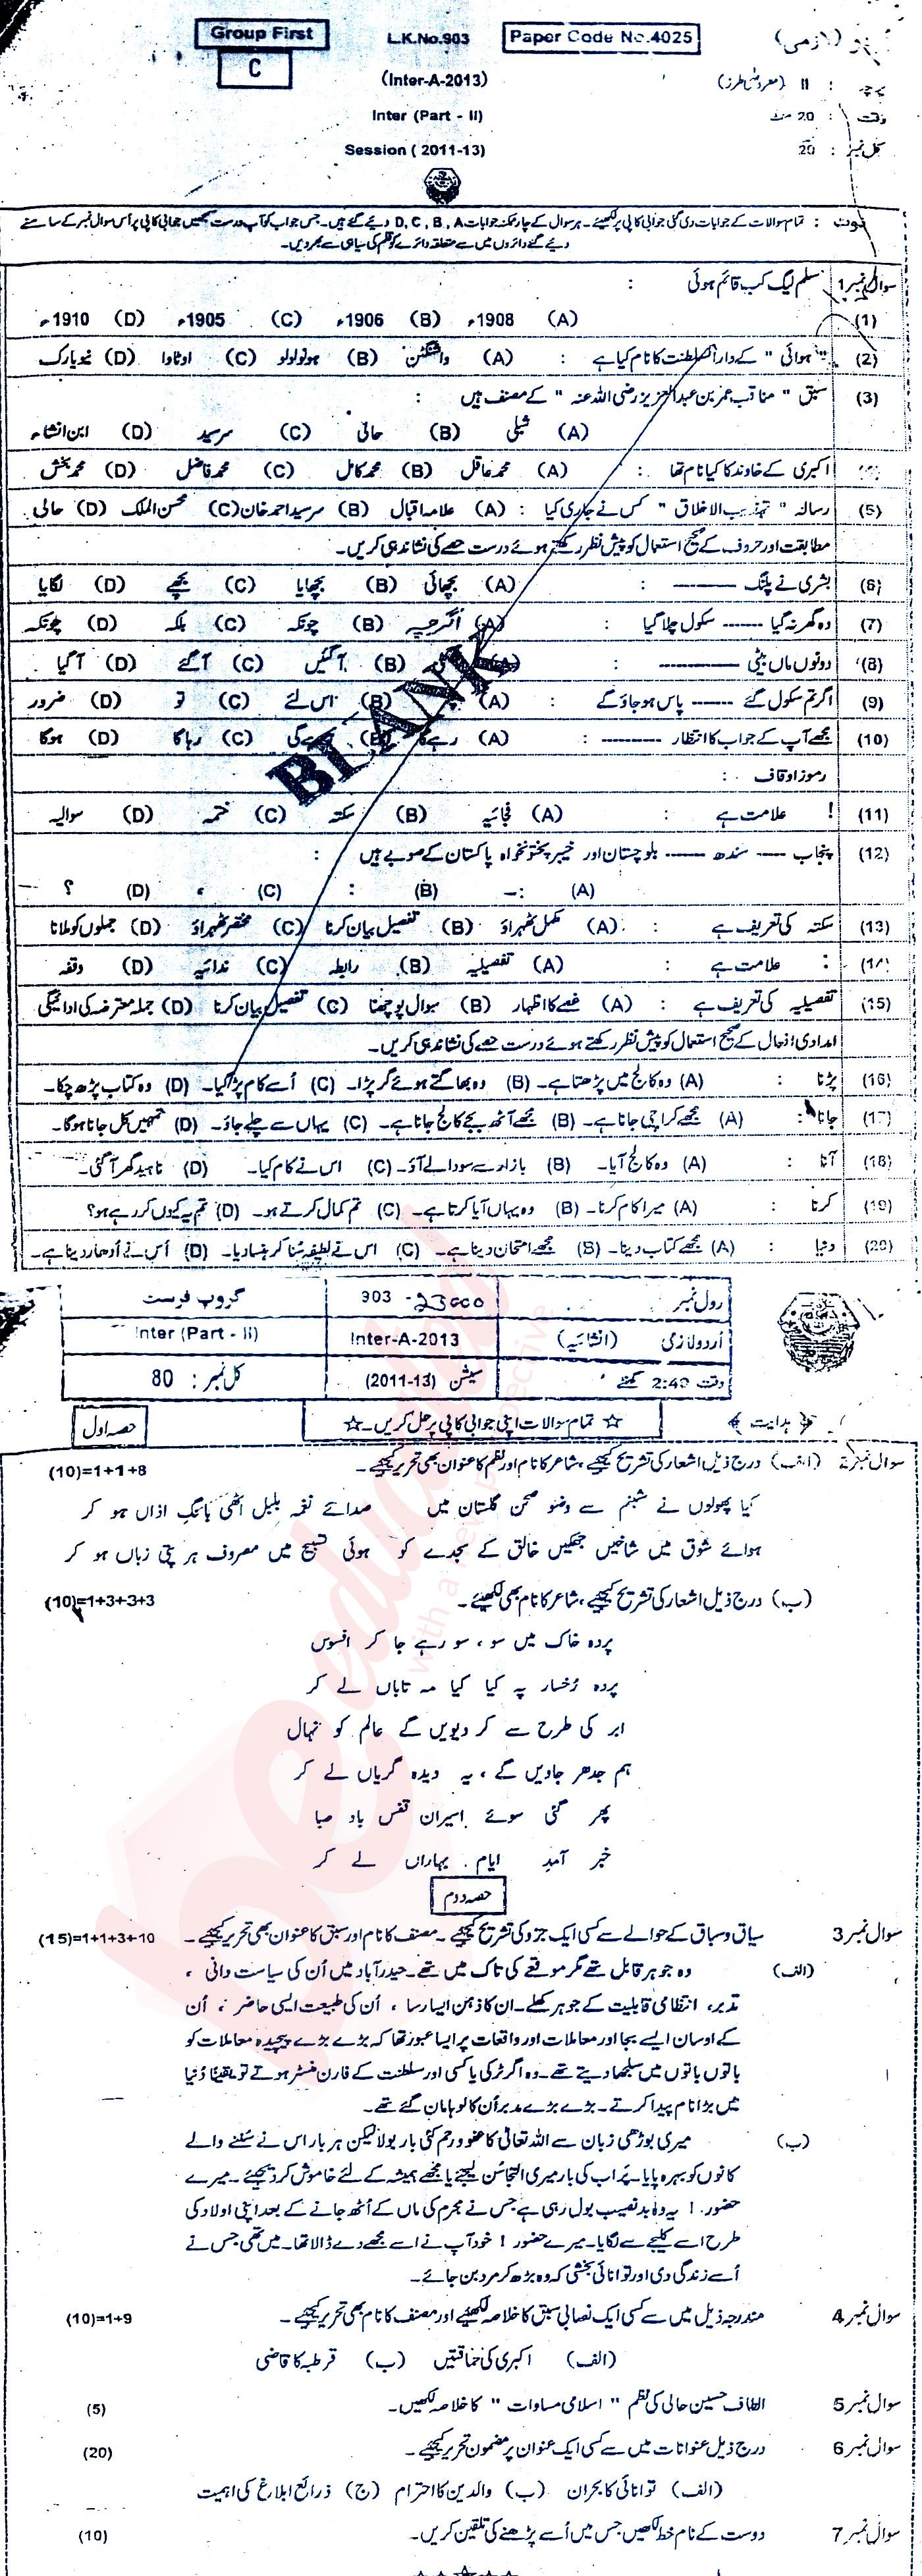 Group First
C
L.K.No.903
Paper Code No.4025
(لازمی)
(Inter-A-2013)
پرچہ : II (معروضی طرز)
Inter (Part - II)
وقت : 20 منٹ
Session ( 2011-13)
کل نمبر : 20
نوٹ : تمام سوالات کے جوابات دی گئی جوابی کاپی پر لکھیئے۔ ہر سوال کے چار ممکنہ جوابات D , C , B , A دیئے گئے ہیں۔ جس جواب کو آپ درست سمجھیں جوابی کاپی پر اُس سوال نمبر کے سامنے
دیئے گئے دائروں میں سے متعلقہ دائرے کو قلم کی سیاہی سے بھر دیں۔
سوال نمبر 1 مسلم لیگ کب قائم ہوئی :
(1) (A) 1908ء (B) 1906ء (C) 1905ء (D) 1910ء
(2) " ہوائی " کے دارالسلطنت کا نام کیا ہے : (A) واشنگٹن (B) ہونولولو (C) اوٹاوا (D) نیویارک
(3) سبق " مناقب عمر بن عبدالعزیز رضی اللہ عنہ " کے مصنف ہیں :
(A) شبلی (B) حالی (C) سرسید (D) ابن انشاء
(4) اکبری کے خاوند کا کیا نام تھا : (A) محمد عاقل (B) محمد کامل (C) محمد فاضل (D) محمد بخش
(5) رسالہ " تہذیب الاخلاق " کس نے جاری کیا : (A) علامہ اقبال (B) سرسید احمد خان (C) محسن الملک (D) حالی
مطابقت اور حروف کے صحیح استعمال کو پیش نظر رکھتے ہوئے درست حصے کی نشاندہی کریں۔
(6) بشریٰ نے پلنگ ------- : (A) بچھائی (B) بچھایا (C) بچھے (D) لگایا
(7) وہ گھر نہ گیا ------ سکول چلا گیا : (A) اگرچہ (B) چونکہ (C) بلکہ (D) چونکہ
(8) دونوں ماں بیٹی --------- : (A) (B) آ گئیں (C) آ گئے (D) آ گیا
(9) اگر تم سکول گئے ------ پاس ہو جاؤ گے : (A) (B) اس لئے (C) تو (D) ضرور
(10) مجھے آپ کے جواب کا انتظار -------- : (A) رہے گا (B) رہے گی (C) رہا گا (D) ہو گا
رموز اوقاف :
(11) ! علامت ہے : (A) فجائیہ (B) سکتہ (C) ختمہ (D) سوالیہ
(12) پنجاب ---- سندھ ------ بلوچستان اور خیبر پختونخواہ پاکستان کے صوبے ہیں :
(A) :۔ (B) : (C) ، (D) ؟
(13) سکتہ کی تعریف ہے : (A) مکمل ٹھہراؤ (B) تفصیل بیان کرنا (C) مختصر ٹھہراؤ (D) جملوں کو ملانا
(14) : علامت ہے : (A) تفصیلیہ (B) رابطہ (C) ندائیہ (D) وقفہ
(15) تفصیلیہ کی تعریف ہے : (A) غصے کا اظہار (B) سوال پوچھنا (C) تفصیل بیان کرنا (D) جملہ معترضہ کی ادائیگی
امدادی افعال کے صحیح استعمال کو پیش نظر رکھتے ہوئے درست حصے کی نشاندہی کریں۔
(16) پڑنا : (A) وہ کالج میں پڑھتا ہے۔ (B) وہ بھاگتے ہوئے گر پڑا۔ (C) اُسے کام پڑ گیا۔ (D) وہ کتاب پڑھ چکا۔
(17) جانا : (A) مجھے کراچی جانا ہے۔ (B) مجھے آٹھ بجے کالج جانا ہے۔ (C) یہاں سے چلے جاؤ۔ (D) تمہیں کل جانا ہو گا۔
(18) آنا : (A) وہ کالج آیا۔ (B) بازار سے سودا لے آؤ۔ (C) اس نے کام کیا۔ (D) ناہید گھر آ گئی۔
(19) کرنا : (A) میرا کام کرنا۔ (B) وہ یہاں آیا کرتا ہے۔ (C) تم کمال کرتے ہو۔ (D) تم یہ کیوں کر رہے ہو؟
(20) دینا : (A) مجھے کتاب دینا۔ (B) مجھے امتحان دینا ہے۔ (C) اس نے لطیفہ سُنا کر ہنسا دیا۔ (D) اُس نے اُدھار دینا ہے۔
BLANK
رول نمبر 903 - 23000 گروپ فرسٹ
اُردو لازمی (انشائیہ) Inter-A-2013 Inter (Part - II)
وقت 2:40 گھنٹے سیشن (2011-13) کل نمبر : 80
﴿ ہدایت ﴾ ☆ تمام سوالات اپنی جوابی کاپی پر حل کریں۔ ☆ حصہ اول
سوال نمبر 2 (الف) درج ذیل اشعار کی تشریح کیجیئے ، شاعر کا نام اور نظم کا عنوان بھی تحریر کیجیئے۔ (10)=1+1+8
کیا پھولوں نے شبنم سے وضو صحن گلستان میں صدائے نغمہ بلبل اٹھی بانگِ اذاں ہو کر
ہوائے شوق میں شاخیں جھکیں خالق کے سجدے کو ہوئی تسبیح میں مصروف ہر پتی زباں ہو کر
(ب) درج ذیل اشعار کی تشریح کیجیئے ، شاعر کا نام بھی لکھیئے۔ (10)=1+3+3+3
پردہ خاک میں سو ، سو رہے جا کر افسوس
پردہ رُخسار پہ کیا کیا مہ تاباں لے کر
ابر کی طرح سے کر دیویں گے عالم کو نہال
ہم جدھر جاویں گے ، یہ دیدہ گریاں لے کر
پھر گئی سوئے اسیران قفس باد صبا
خبر آمدِ ایام بہاراں لے کر
حصہ دوم
سوال نمبر 3 سیاق و سباق کے حوالے سے کسی ایک جزو کی تشریح کیجیئے ۔ مصنف کا نام اور سبق کا عنوان بھی تحریر کیجیئے ۔ (15)=1+1+3+10
(الف) وہ جوہر قابل تھے مگر موقعے کی تاک میں تھے۔ حیدر آباد میں اُن کی سیاست دانی ،
تدبر، انتظامی قابلیت کے جوہر کھلے۔ ان کا ذہن ایسا رسا ، اُن کی طبیعت ایسی حاضر ، اُن
کے اوسان ایسے بجا اور معاملات اور واقعات پر ایسا عبور تھا کہ بڑے بڑے پیچیدہ معاملات کو
باتوں باتوں میں سلجھا دیتے تھے۔ وہ اگر ٹرکی یا کسی اور سلطنت کے فارن منسٹر ہوتے تو یقیناً دُنیا
میں بڑا نام پیدا کرتے۔ بڑے بڑے مدبر اُن کا لوہا مان گئے تھے۔
(ب) میری بوڑھی زبان سے اللہ تعالیٰ کا عفو و رحم کئی بار بولا لیکن ہر بار اس نے سُننے والے
کانوں کو بہرہ پایا۔ پَر اب کی بار میری التجا سُن لیجئے یا مجھے ہمیشہ کے لئے خاموش کر دیجیئے ۔ میرے
حضور ! یہ وہ بد نصیب بول رہی ہے جس نے مجرم کی ماں کے اُٹھ جانے کے بعد اپنی اولاد کی
طرح اسے کلیجے سے لگایا۔ میرے حضور ! خود آپ نے اسے مجھے دے ڈالا تھا۔ میں تھی جس نے
اُسے زندگی دی اور توانائی بخشی کہ وہ بڑھ کر مرد بن جائے۔
سوال نمبر 4 مندرجہ ذیل میں سے کسی ایک نصابی سبق کا خلاصہ لکھیئے اور مصنف کا نام بھی تحریر کیجیئے ۔ (10)=1+9
(الف) اکبری کی حماقتیں (ب) قرطبہ کا قاضی
سوال نمبر 5 الطاف حسین حالی کی نظم " اسلامی مساوات " کا خلاصہ لکھیں۔ (5)
سوال نمبر 6 درج ذیل عنوانات میں سے کسی ایک عنوان پر مضمون تحریر کیجیئے ۔ (20)
(الف) توانائی کا بحران (ب) والدین کا احترام (ج) ذرائع ابلاغ کی اہمیت
سوال نمبر 7 دوست کے نام خط لکھیں جس میں اُسے پڑھنے کی تلقین کریں۔ (10)